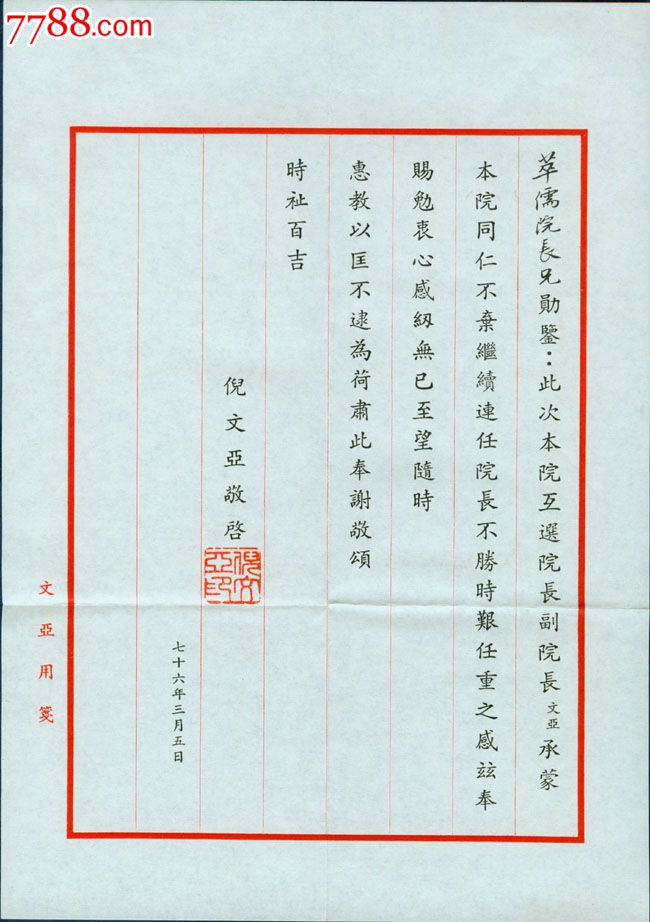 7788.com
萃儒院長兄勛鑒：此次本院互選院長副院長文亞承蒙
本院同仁不棄繼續連任院長不勝時艱任重之感茲奉
賜勉衷心感紉無已至望隨時
惠教以匡不逮為荷肅此奉謝敬頌
時祉百吉
倪文亞敬啓
倪文亞印
七十六年三月五日
文亞用箋